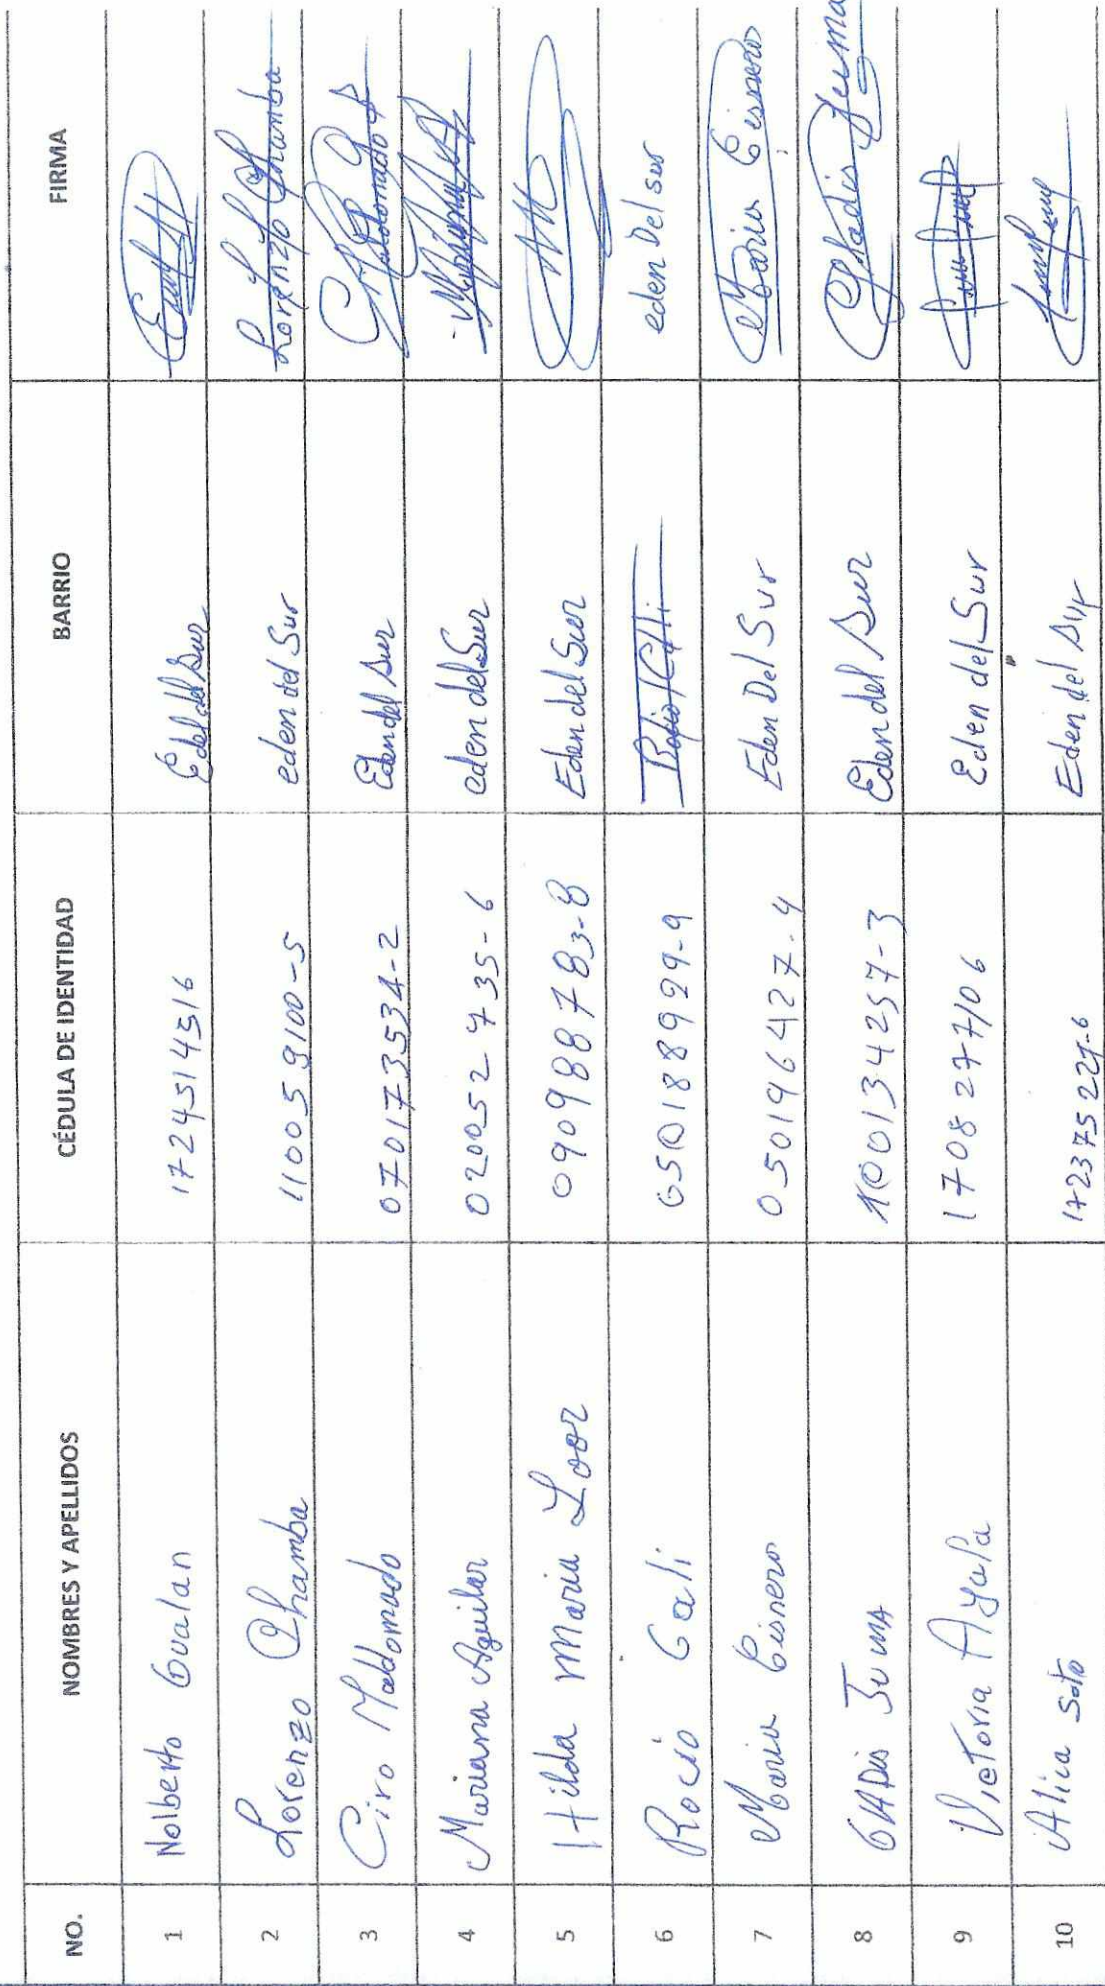 NO. NOMBRES Y APELLIDOS CÉDULA DE IDENTIDAD BARRIO FIRMA
1 Nolberto Gualan 1724514516 Edel del Sur
2 Lorenzo Chamba 110059100-5 eden del Sur Lorenzo Chamba
3 Ciro Maldonado 070173534-2 Eden del Sur CMaldonado
4 Mariana Aguilar 020052735-6 eden del Sur
5 Hilda Maria Loor 090988783-8 Eden del Sur
6 Rocio Cali 050188929-9 Rocio Cali eden Del sur
7 Maria Cisnero 050196427-4 Eden Del Sur Maria Cisnero
8 GlADis JumA 100134257-3 Eden del Sur Gladis Juma
9 Victoria Ayala 1708277106 Eden del Sur
10 Alica Soto 172375227-6 Eden del Sur